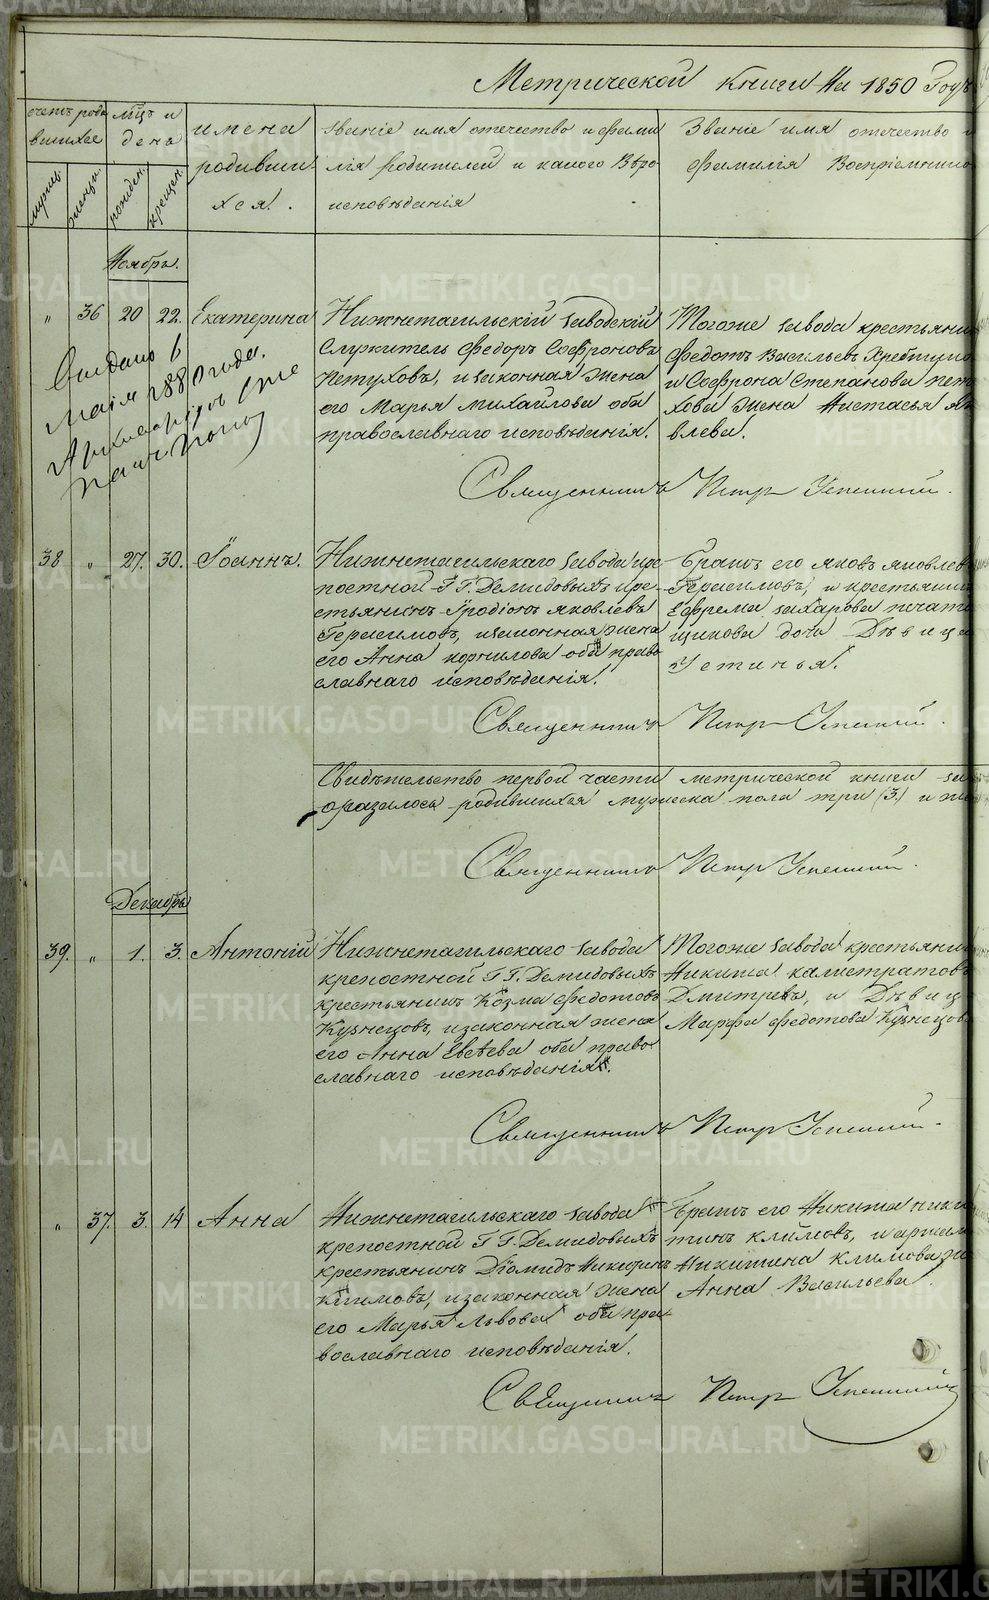 Метрической книги на 1850 Годъ
счетъ родившихся
мѣсяцъ и день
имена родившихся.
званіе имя отечество и фамилія родителей и какого Вѣроисповѣданія
Званіе имя отечество и фамилія Воспріемнико
мужес.
женска.
рожден.
крещен.
Ноябрь.
„ 36 20 22. Екатерина
Нижнетагильскій заводскій
служитель Федоръ Софроновъ
Петуховъ, и законная жена
его Марья Михайлова оба
православнаго исповѣданія.
Тогоже завода крестьянин
Федотъ Васильевъ
и Софрона Степанова Пету
хова жена Настасья Як
влева.
Выдано 6
маія 1880 года.
Священникъ Петръ Успенскій.
38 „ 27. 30. Іоаннъ.
Нижнетагильскаго завода кре-
постной Г.Г. Демидовыхъ кре-
стьянинъ Іродіонъ Яковлевъ
Герасимовъ, и законная жена
его Анна Корнилова оба право
славнаго исповѣданія.
Братъ его Яковъ Яковлев
Герасимовъ, и крестьянин
Ефрема Захарова Печат
щикова дочь Дѣвица
Устинья.
Священникъ Петръ Успенскій.
Свидѣтельство первой части метрической книги
оказалось родившихся мужеска пола три (3.) и же
Священникъ Петръ Успенскій.
Декабрь
39. „ 1. 3. Антоній
Нижнетагильскаго завода
крепостной Г.Г. Демидовыхъ
крестьянинъ Козма Федотовъ
Кузнецовъ, и законная жена
его Анна Евсѣева оба право
славнаго исповѣданія.
Тогоже завода крестьянин
Никита Калистратовъ
Дмитревъ, и Дѣвица
Марфа Федотова Кузнецова
Священникъ Петръ Успенскій.
„ 37. 3. 14 Анна
Нижнетагильскаго завода
крепостной Г.Г. Демидовыхъ
крестьянинъ Діомидъ Никитинъ
Климовъ, и законная жена
его Марья Львова оба пра
вославнаго исповѣданія.
Братъ его Никита Ники
тинъ Климовъ, и
Никитина Климова же
Анна Васильева.
Священникъ Петръ Успенскій
METRIKI.GASO-URAL.RU